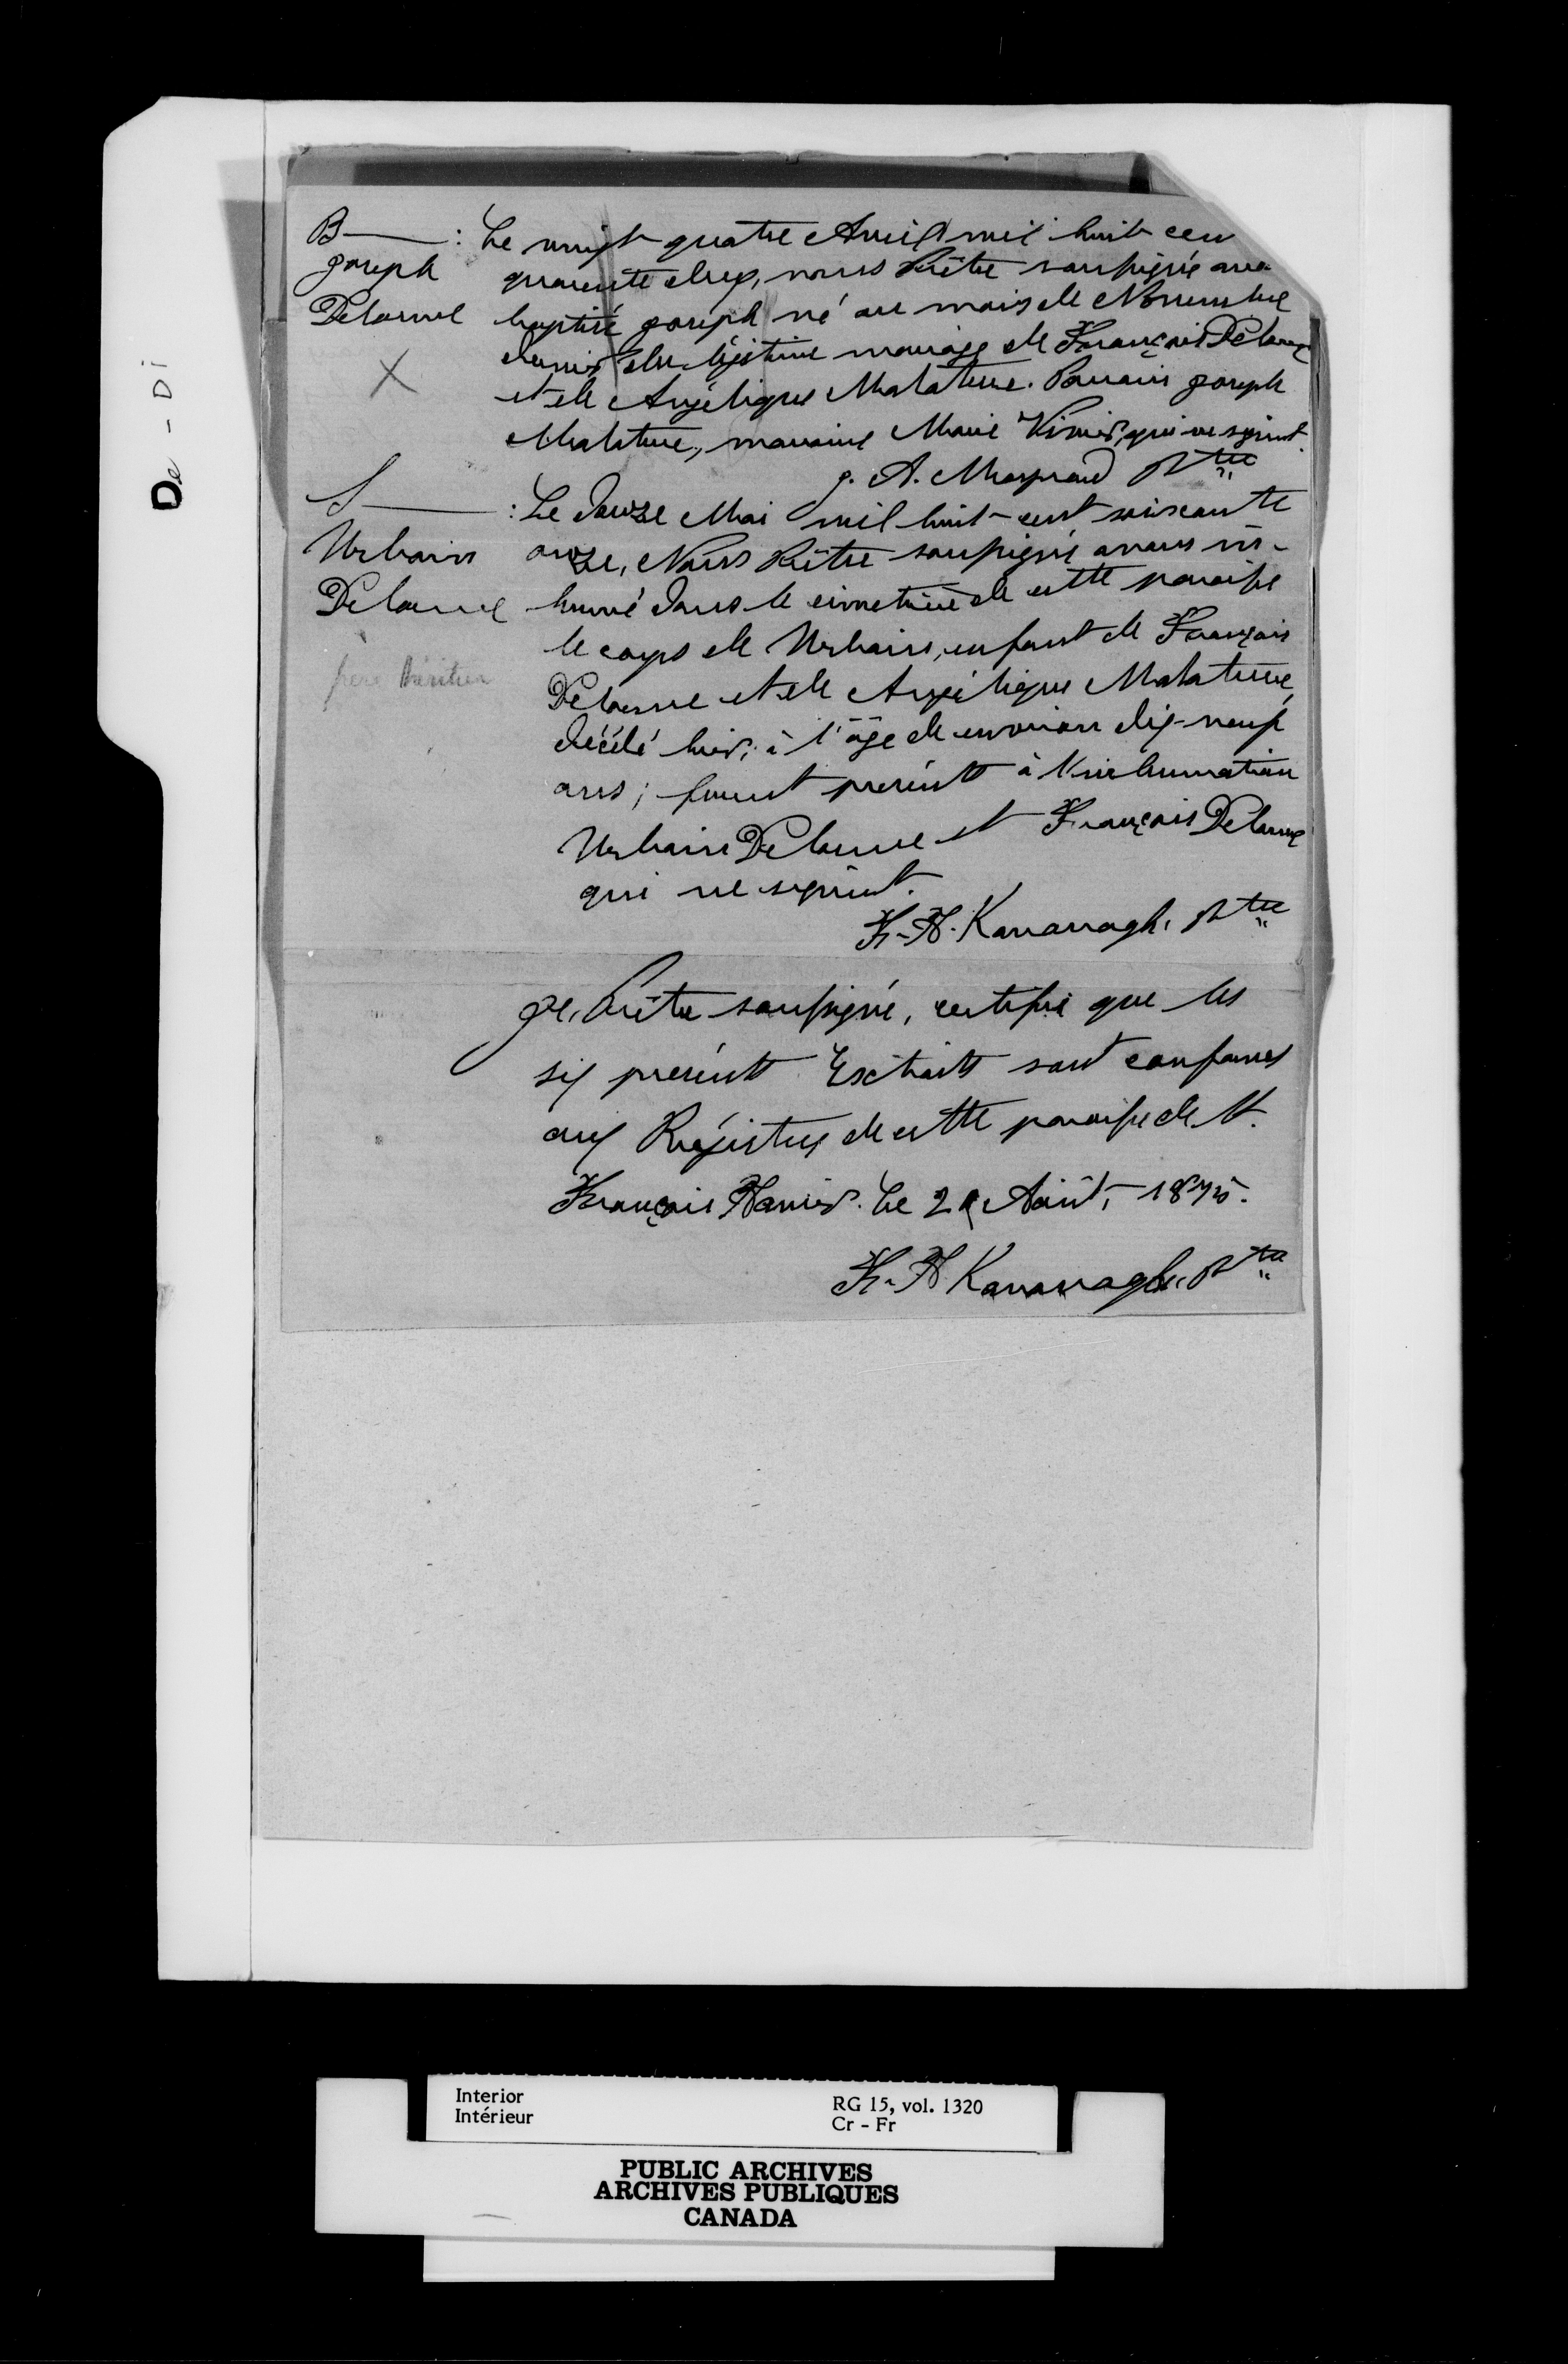 De - Di
B——— : Le vingt quatre Avril mil huit cent
Joseph quarante deux, nous Prêtre soussigné avons
Delorme baptisé Joseph né au mois de Novembre
dernier du légitime mariage de François Delorme
X et de Angélique Malaterre. Parrain Joseph
Malaterre, marraine Marie Vivier, qui ne signent.
J. A. Mayrand Ptre
S——— : Le Douze Mai mil huit-cent soixante
Urbain onze, Nous Prêtre soussigné avons in-
Delorme humé dans le cimetière de cette paroisse
le corps de Urbain, enfant de François
père héritier
Delorme et de Angélique Malaterre,
décédé hier, à l'âge de environ dix-neuf
ans; furent présents à l'inhumation
Urbain Delorme et François Delorme
qui ne signent.
F.-X. Kavanagh, Ptre
Je, Prêtre soussigné, certifie que les
six présents Extraits sont conformes
aux Régistres de cette paroisse de St.
François Xavier. Le 2 Août, 1875.
F.-X Kavanagh, Ptre
Interior
Intérieur
RG 15, vol. 1320
Cr - Fr
PUBLIC ARCHIVES
ARCHIVES PUBLIQUES
CANADA